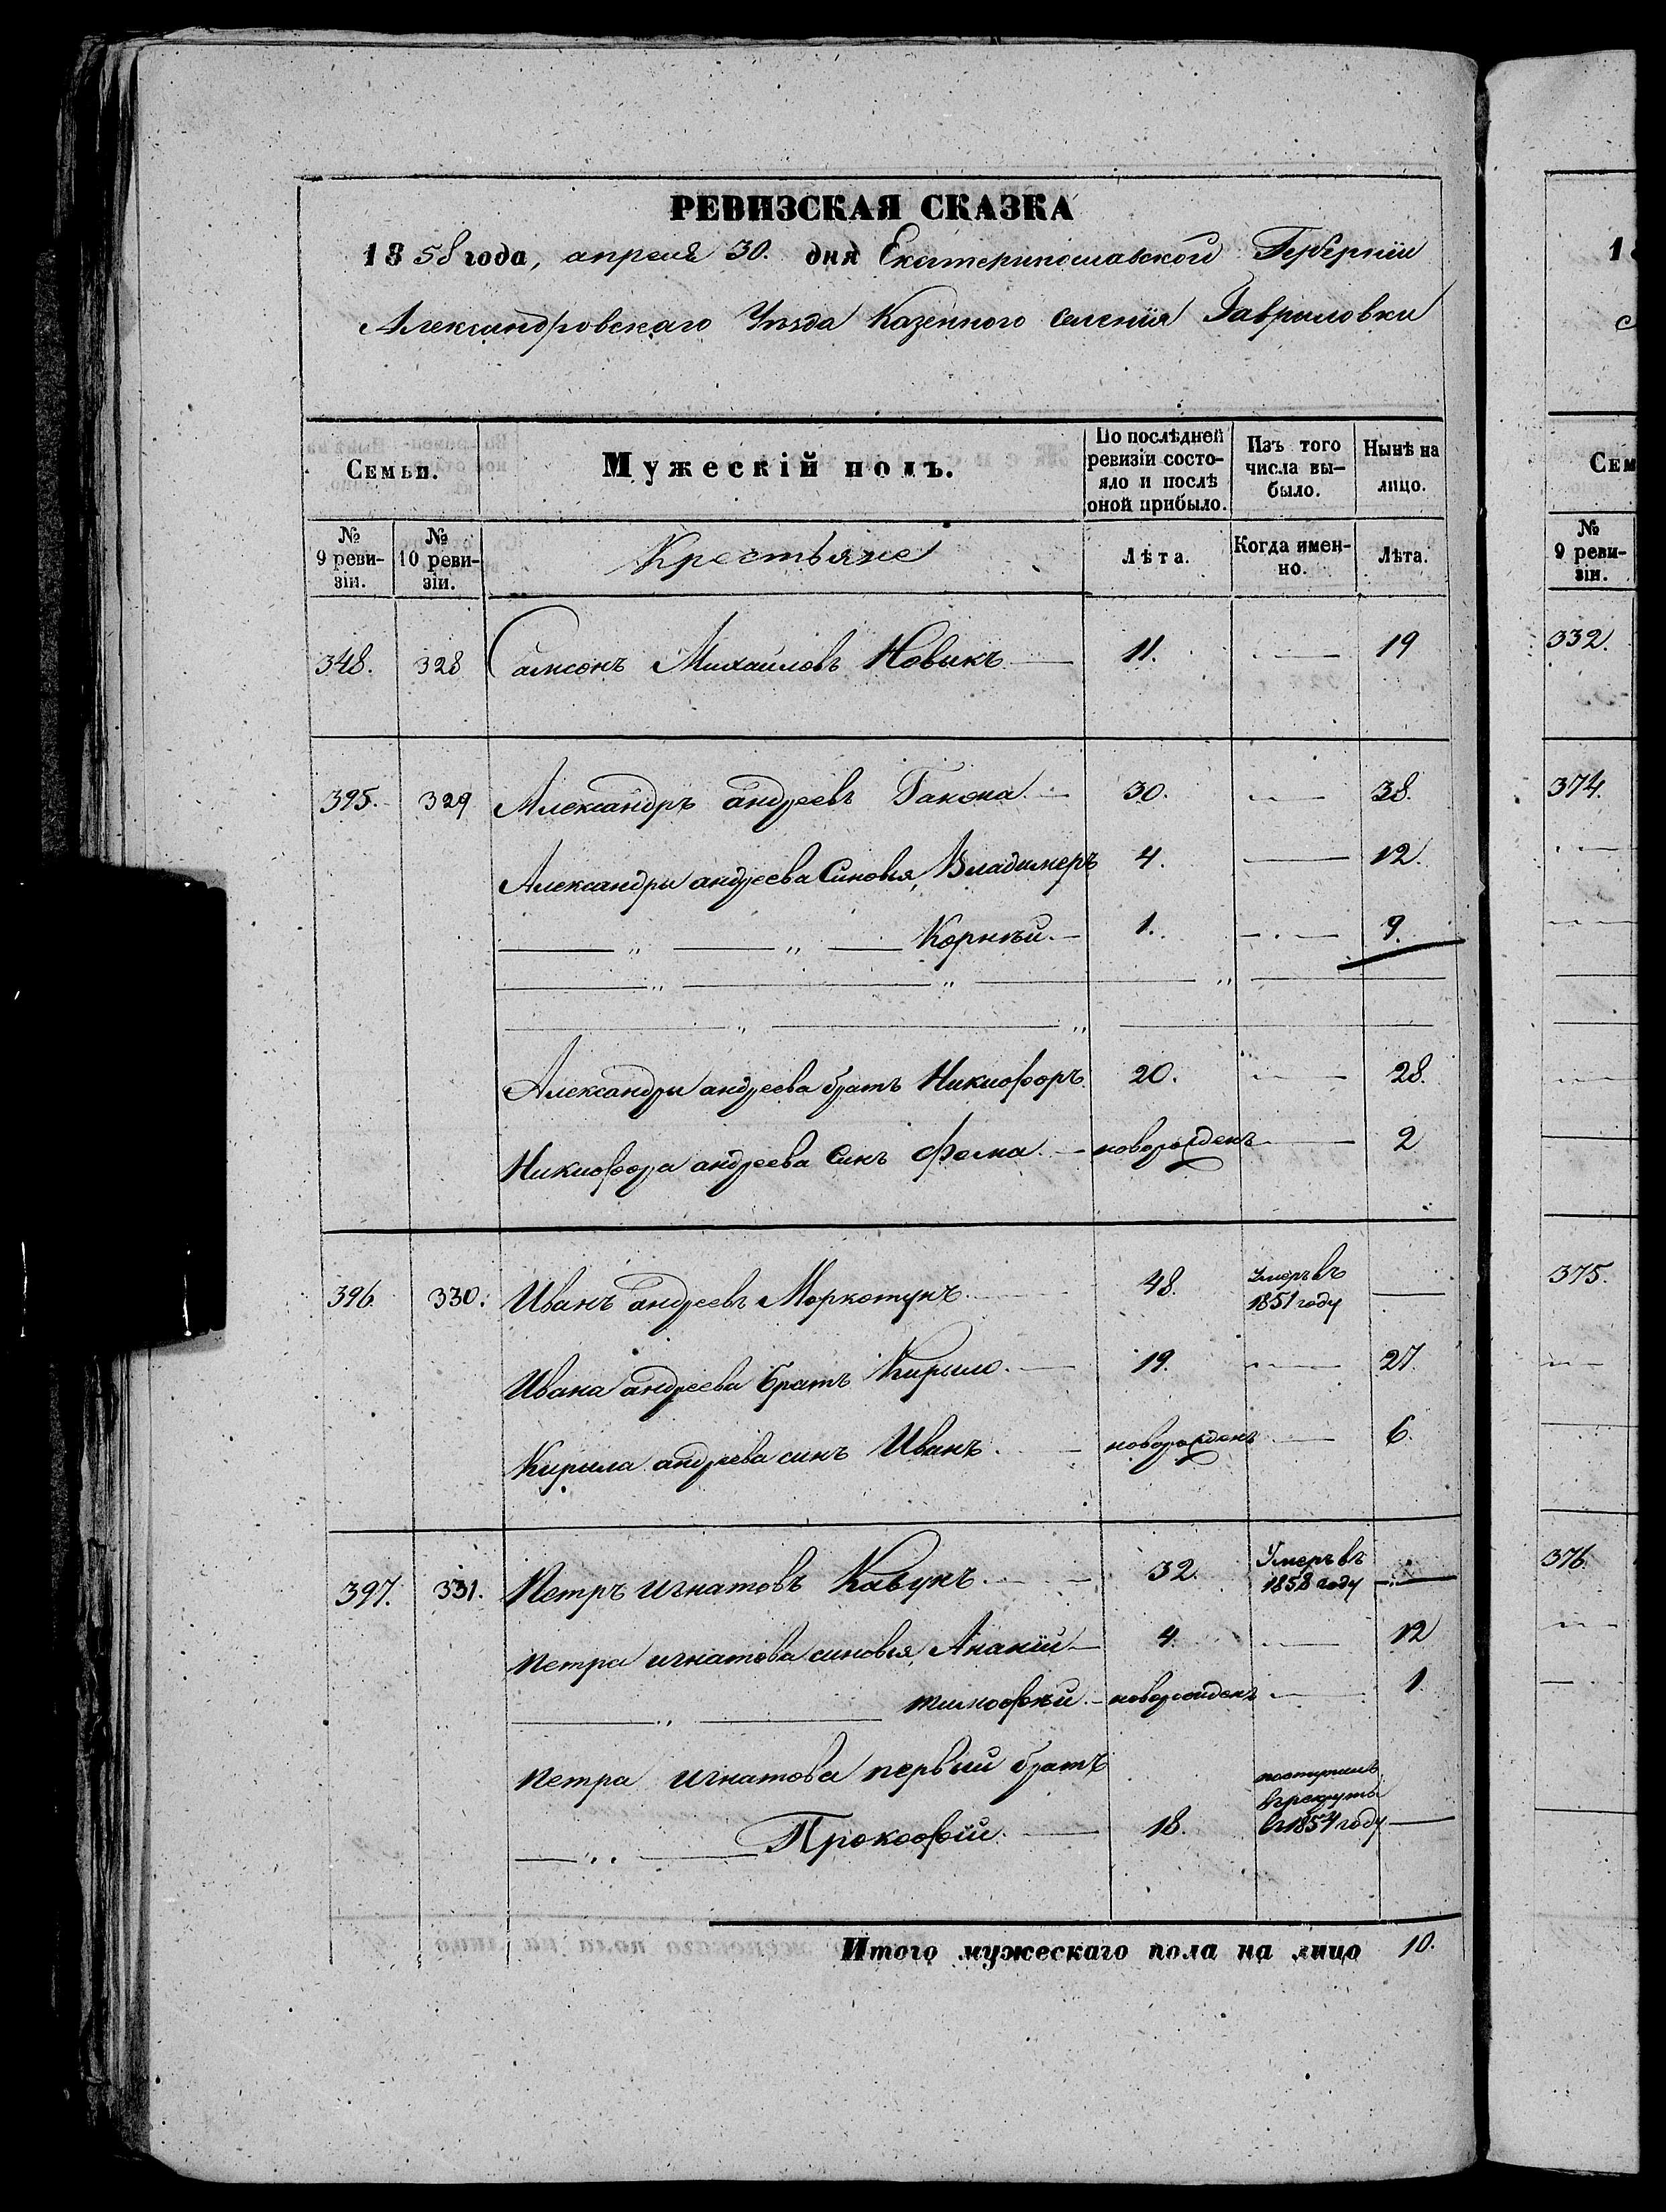 РЕВИЗСКАЯ СКАЗКА
1858 года, апреля 30. дня Екатеринославской Губернiи
Александровскаго Уѣзда Казенного селенiя Гавриловки
Семьи. Мужескiй полъ. По послѣдней ревизiи состояло и послѣ оной прибыло. Изъ того числа выбыло. Нынѣ на лицо.
№ 9 ревизiи. № 10 ревизiи. Крестьяне Лѣта. Когда именно. Лѣта.
348. 328 Самсонъ Михайловъ Новикъ 11. 19
395. 329 Александръ андреевъ Гакона 30. 38.
Александры андреева Синовья, Владимеръ 4. 12.
Корнѣй 1. 9.
Александры андреева братъ Никиофоръ 20. 28.
Никиофора андреева Синъ Фома новорожденъ 2
396. 330. Иванъ андреевъ Моркотунъ 48. Умеръ въ 1851 году
Ивана андреева братъ Кирило 19. 27.
Кирыла андреева синъ Иванъ новорожденъ 6.
397. 331. Петръ игнатовъ Кавунъ 32. Умеръ въ 1858 году
Петра игнатова синовья, Ананiй 4. 12
тимофѣй новорожденъ 1
Петра игнатова первый братъ
Прокофiй 18. поступилъ в рекруты въ 1854 году
Итого мужескаго пола на лицо 10.
1
с
Сем
№ 9 ревизiи.
332.
374.
375.
376.